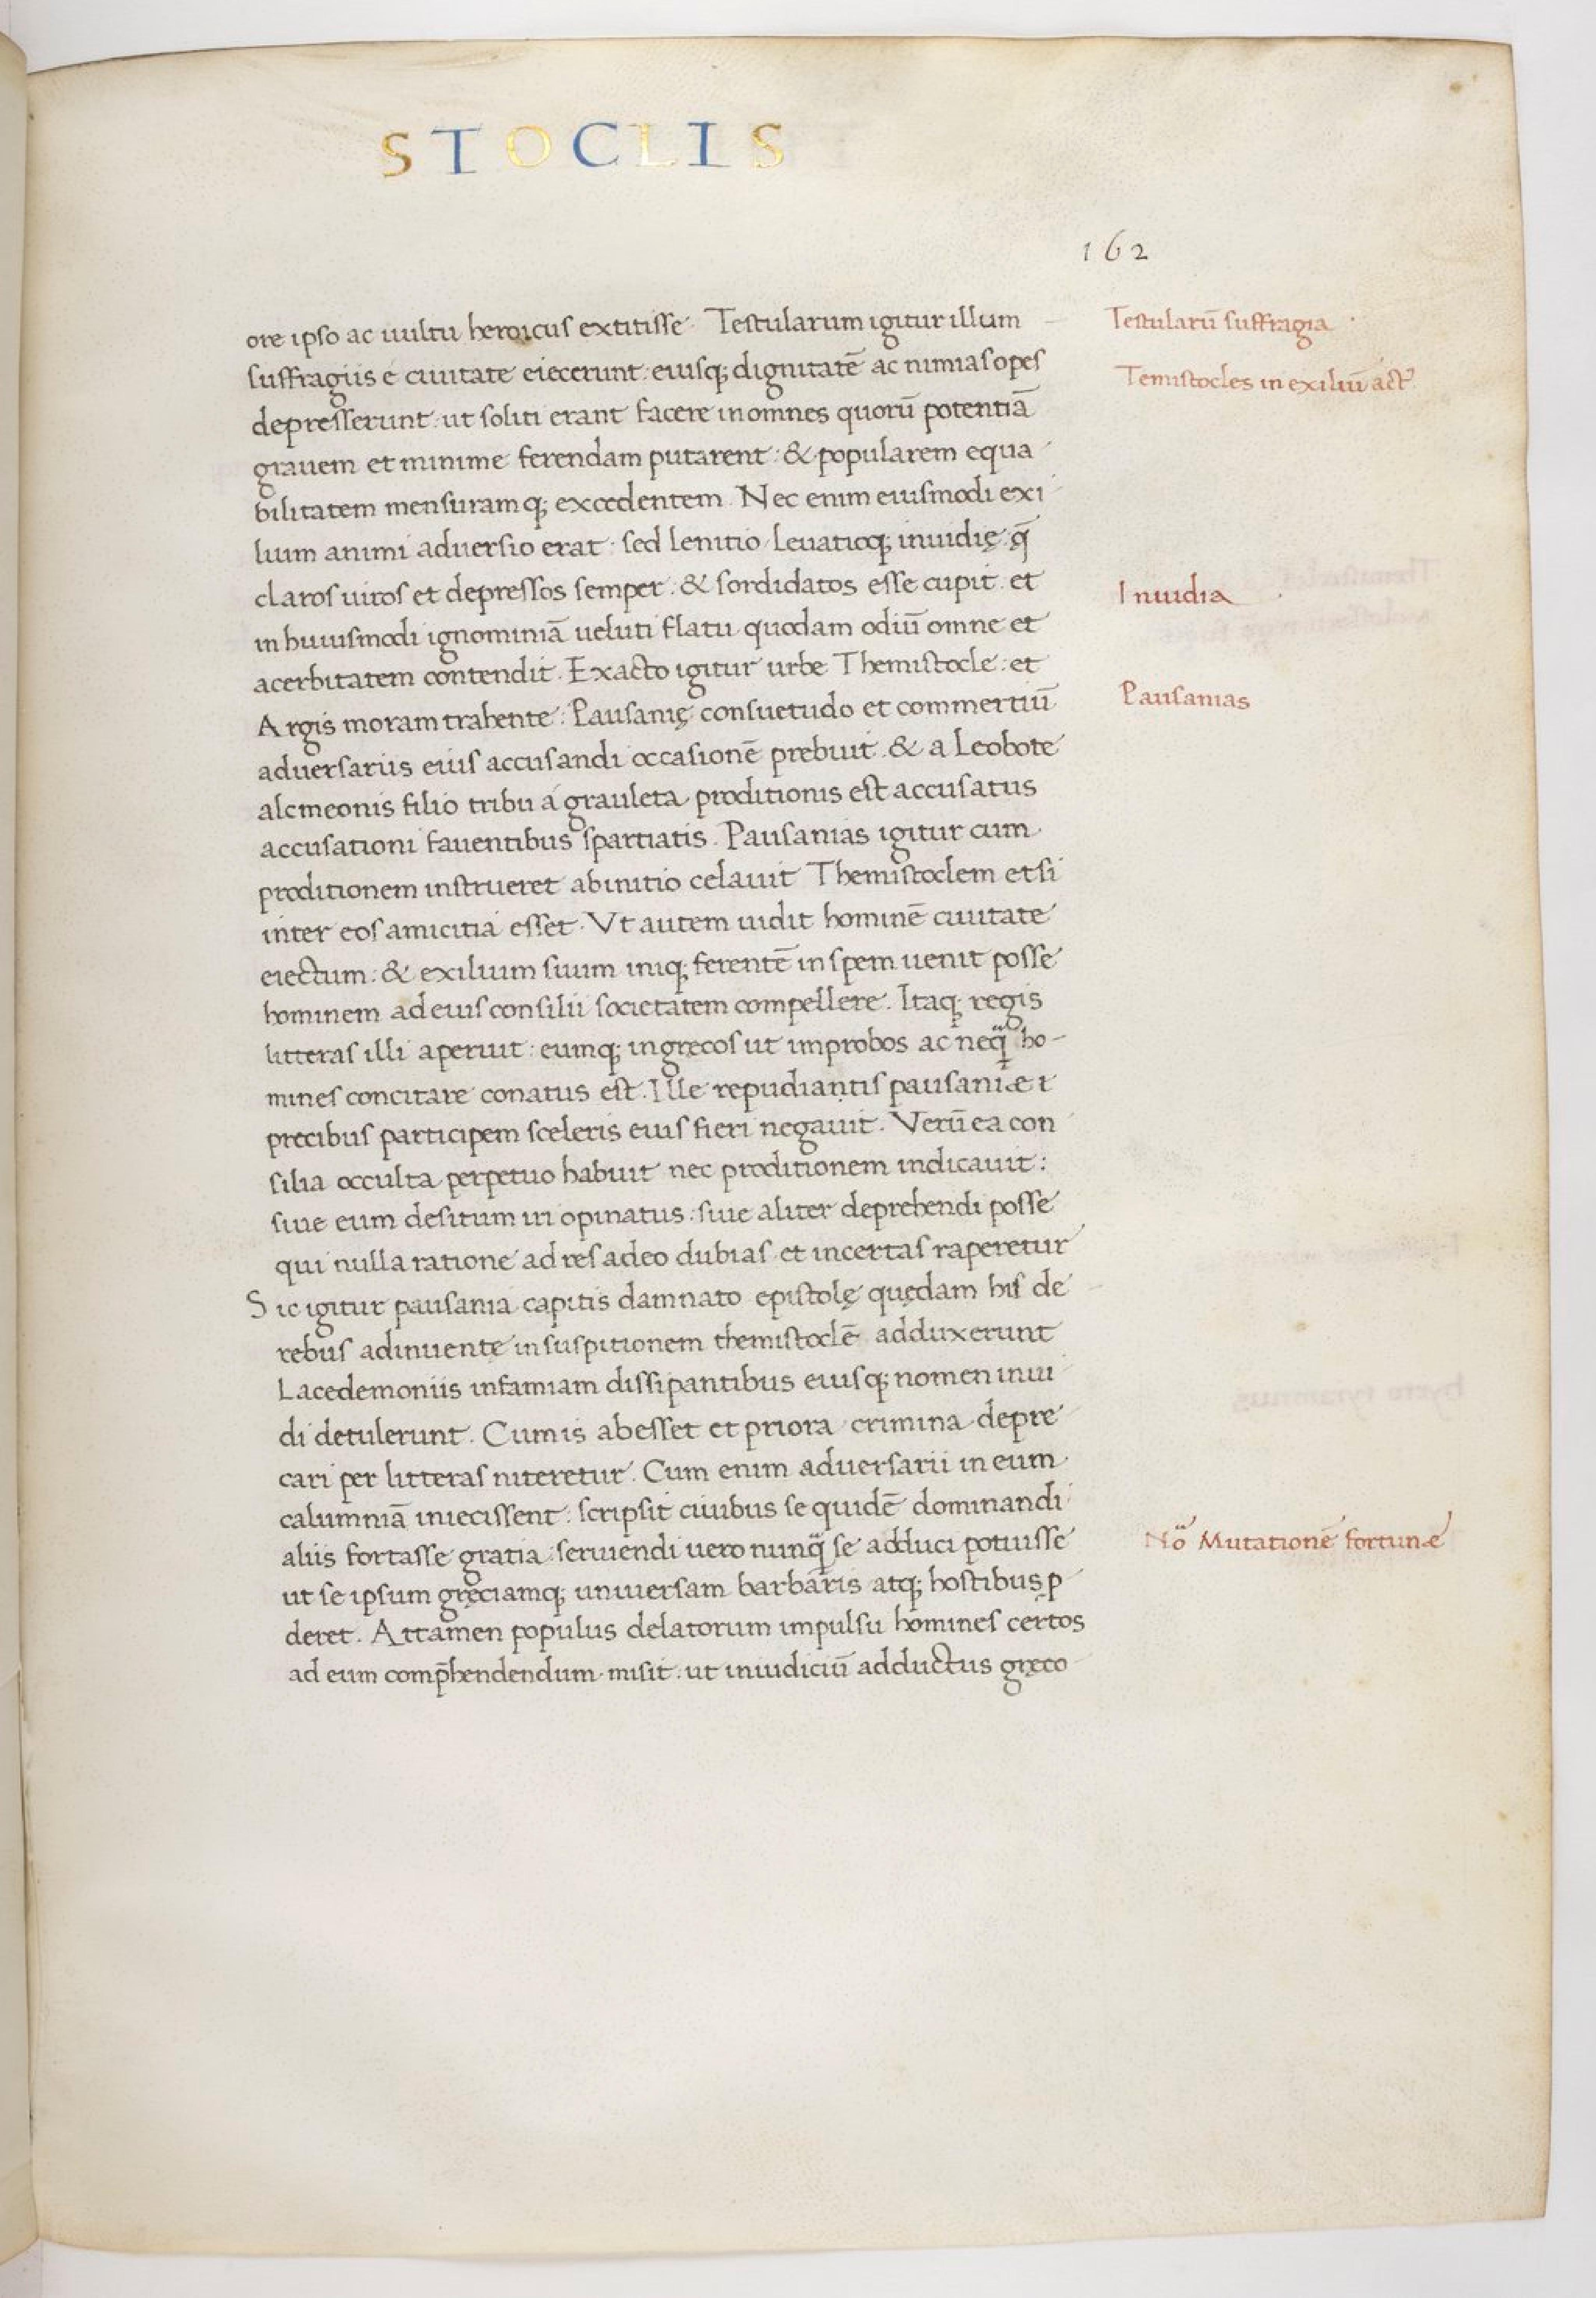 STOCLIS
162
ore ipso ac uultu heroicus extitisse. Testularum igitur illum
suffragiis e ciuitate eiecerunt: eiusq; dignitatē ac nimias opes
depresserunt: ut soliti erant facere in omnes quorū potentiā
grauem et minime ferendam putarent: & popularem equa
bilitatem mensuramq; excedentem. Nec enim eiusmodi exi
lium animi aduersio erat: sed lenitio leuatioq; inuidię: q̄
claros uiros et depressos semper: & sordidatos esse cupit. et
in huiusmodi ignominiā ueluti flatu quodam odiū omne et
acerbitatem contendit. Exacto igitur urbe Themistocle: et
Argis moram trahente: Pausanię consuetudo et commertiū
aduersariis eius accusandi occasionē prebuit. & a Leobote
alcmeonis filio tribu a grauleta proditionis est accusatus
accusationi fauentibus spartiatis. Pausanias igitur cum
proditionem instrueret ab initio celauit Themistoclem etsi
inter eos amicitia esset. Vt autem uidit hominē ciuitate
eiectum: & exilium suum iniq; ferentē in spem uenit posse
hominem ad eius consilii societatem compellere. Itaq; regis
litteras illi aperuit: eumq; in gręcos ut improbos ac neq̈ ho-
mines concitare conatus est. Ille repudiantis pausaniæ t
precibus participem sceleris eius fieri negauit. Verū ea con
silia occulta perpetuo habuit nec proditionem indicauit:
siue eum desitum iri opinatus: siue aliter deprehendi posse
qui nulla ratione ad res adeo dubias et incertas raperetur
Sic igitur pausania capitis damnato epistolę quędam his de
rebus adinuentę in suspitionem themistoclē adduxerunt
Lacedemoniis infamiam dissipantibus eiusq; nomen inui
di detulerunt. Cum is abesset et priora crimina depre
cari per litteras niteretur. Cum enim aduersarii in eum
calumniā iniecissent: scripsit ciuibus se quidē dominandi
aliis fortasse gratia: seruiendi uero nunq̈ se adduci potuisse
ut se ipsum gręciamq; uniuersam barbaris atq; hostibus ꝓ
deret. Attamen populus delatorum impulsu homines certos
ad eum comp̄hendendum misit: ut in iudiciū adductus gręco
Testularū suffragia
Temistocles in exiliū act᾽
Inuidia
Pausanias
Nö Mutationē fortunæ